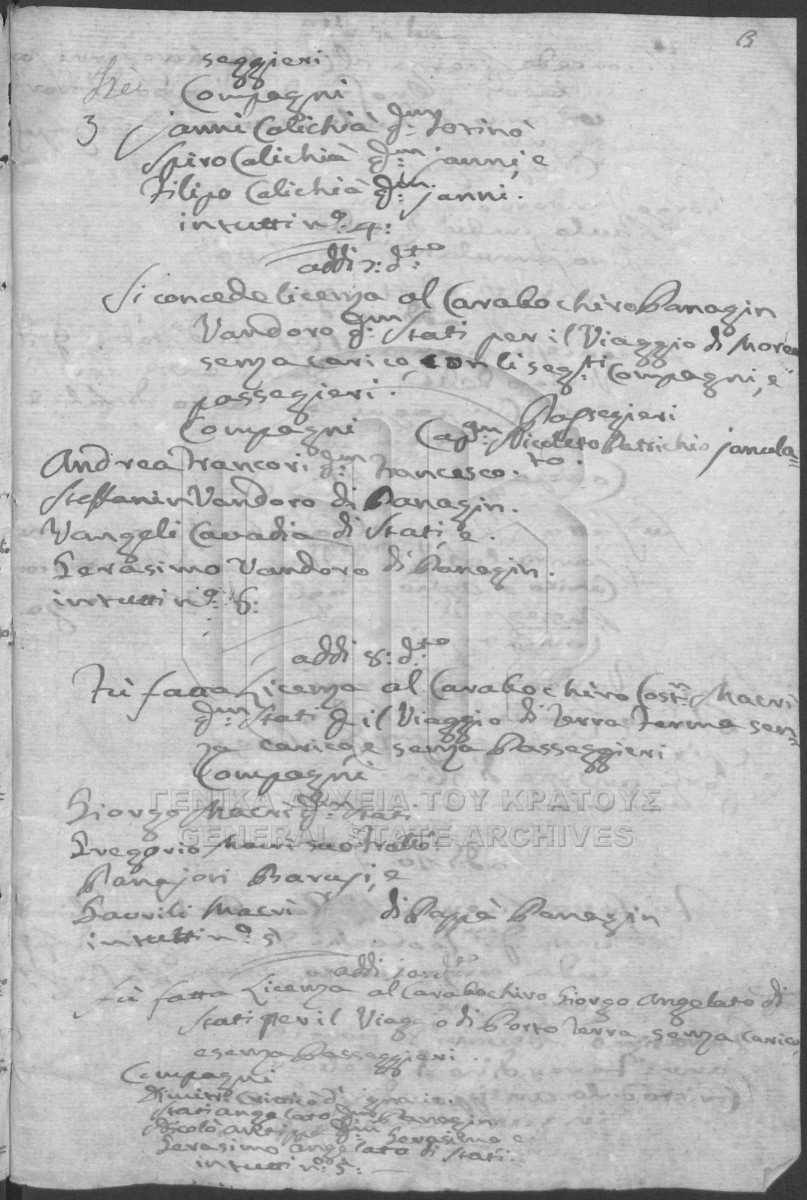 B
seggieri
Compagni
3 Janni Calichià q:m Torinò
Spiro Calichià q:m Janni, e
Filipo Calichià q:m Janni.
in tutti n:o 4:
addi 7: d:to
Si concede licenza al Carabochiro Panagin
Vandoro q:m Stati per il Viaggio di Morea
senza carico, con li seg:ti Compagni, e
passegieri.
Compagni Passegieri
Nicoleto Jancula=
Andrea Francori q:m Francesco. to.
Steffanin Vandoro di Panagin.
Vangeli Cavadia di Stati, e.
Gerasimo Vandoro di Panagin.
in tutti n:o 6:
addi 8: d:to
Fù fatta Licenza al Carabochiro Cost:n Macri
q:m Stati p il Viaggio di Terra Ferma sen=
za carico, e senza Passeggieri
Compagni
Giorgo Macri q:m Stati
Gregorio Macri suo Frallo.
Panajori Barusi, e
Gavrili Macri di Pappà Panagin
in tutti n:o 5
addi d:to
Fù fatta Licenza al Carabochiro Giorgo Angelato di
Stati per il Viaggio di Porto Terra senza carico,
e senza Passeggieri.
Compagni
Dimitri di Ignacio.
Stati Angelato q:m Panagin
Nicolò q:m Gerasimo e
Gerasimo Angelato di Stati.
in tutti n:o 5:
ΓΕΝΙΚΑ ΑΡΧΕΙΑ ΤΟΥ ΚΡΑΤΟΥΣ
GENERAL STATE ARCHIVES